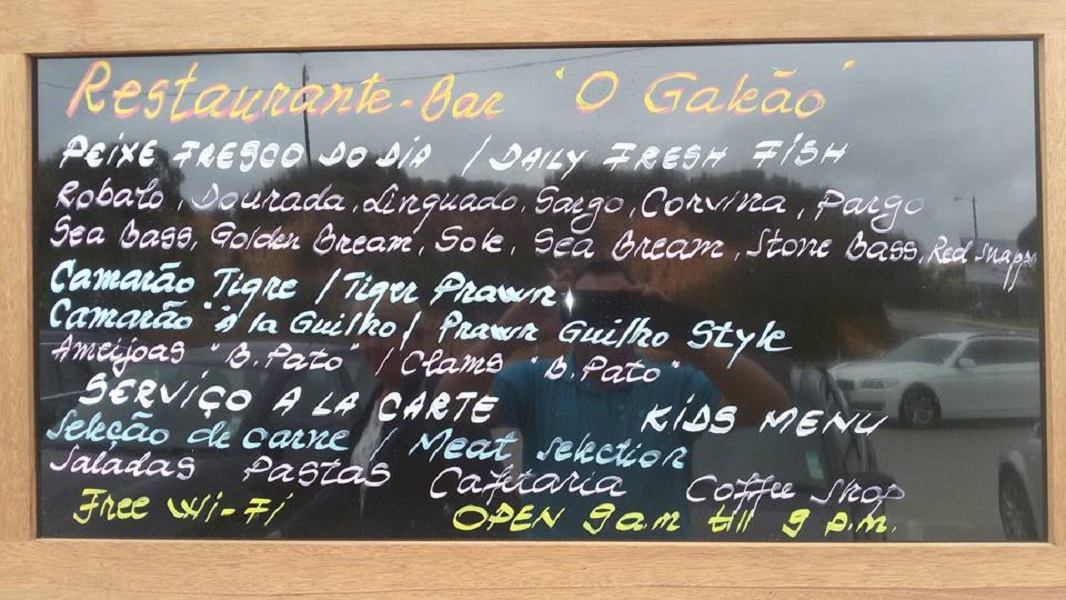 Restaurante-Bar "O Galeão"
PEIXE FRESCO DO DIA / DAILY FRESH FISH
Robalo, Dourada, Linguado, Sargo, Corvina, Pargo
Sea Bass, Golden Bream, Sole, Sea Bream, Stone Bass, Red Snapper
Camarão Tigre / Tiger Prawn
Camarão "À la Guilho / Prawn Guilho Style
Ameijoas "B. Pato" / Clams "B. Pato"
SERVIÇO A LA CARTE KIDS MENU
Seleção de carne / Meat selection
Saladas Pastas Cafetaria Coffee Shop
Free Wi-Fi OPEN 9am till 9 p.m.